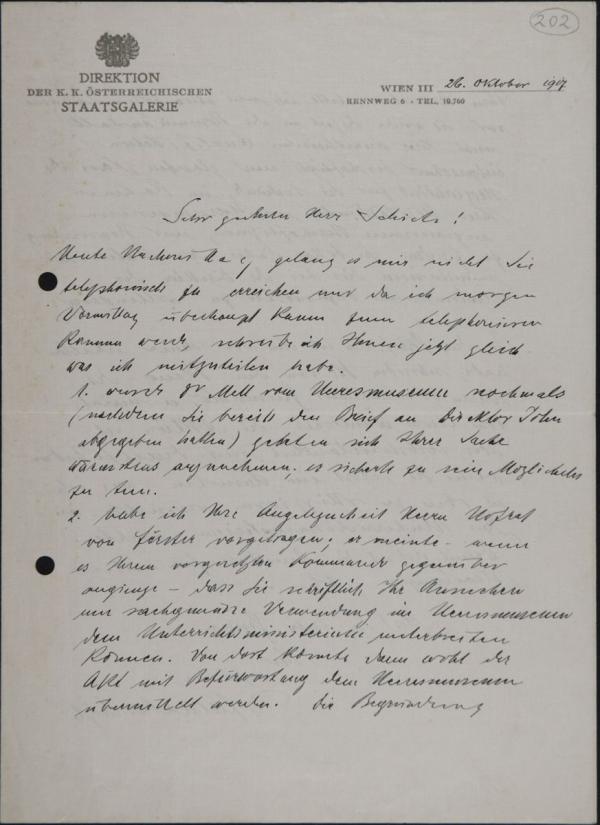 202
DIREKTION
DER K. K. ÖSTERREICHISCHEN
STAATSGALERIE
WIEN III 26. Oktober 1917
RENNWEG 6 - TEL. 10.760
Sehr geehrter Herr Schiele!
Heute Nachmittag gelang es mir nicht Sie
telephonisch zu erreichen und da ich morgen
Vormittag überhaupt kaum zum telephonieren
kommen werde, schreibe ich Ihnen jetzt gleich
was ich mitzuteilen habe.
1. wurde Dr Mell vom Heeresmuseum nochmals
(nachdem Sie bereits den Brief an Direktor John
abgegeben hatten) gebeten sich Ihrer Sache
wärmstens anzunehmen; er sicherte zu sein Möglichstes
zu tun.
2. habe ich Ihre Angelegenheit Herrn Hofrat
von Förster vorgetragen; er meinte - wenn
es Ihrem vorgesetzten Kommando gegenüber
anginge - dass Sie schriftlich Ihr Ansuchen
um sachgemässe Verwendung im Heeresmuseum
dem Unterrichtsministerium unterbreiten
können. Von dort könnte dann wohl der
Akt mit Befürwortung dem Heeresmuseum
übermittelt werden. Die Begründung